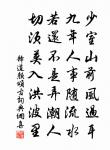 少室山前風過耳
九年人事隨流水
若還不是弄潮人
切須莫入洪波裏
釋道顏頌古